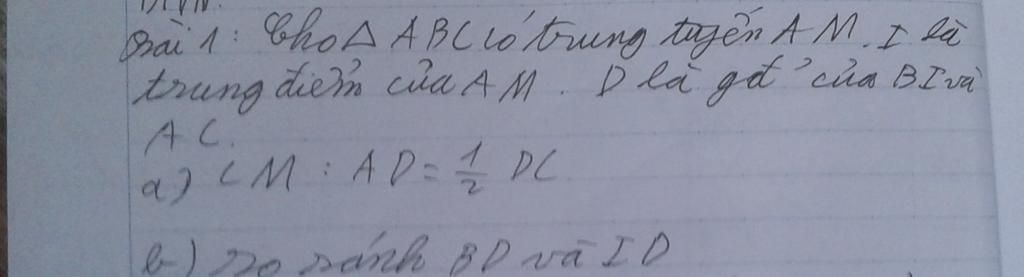 Bài 1: Cho Δ ABC có trung tuyến AM. I là
trung điểm của AM. D là gđ' của BI và
AC.
a) CM: AD = 1/2 DC
b) so sánh BD và ID